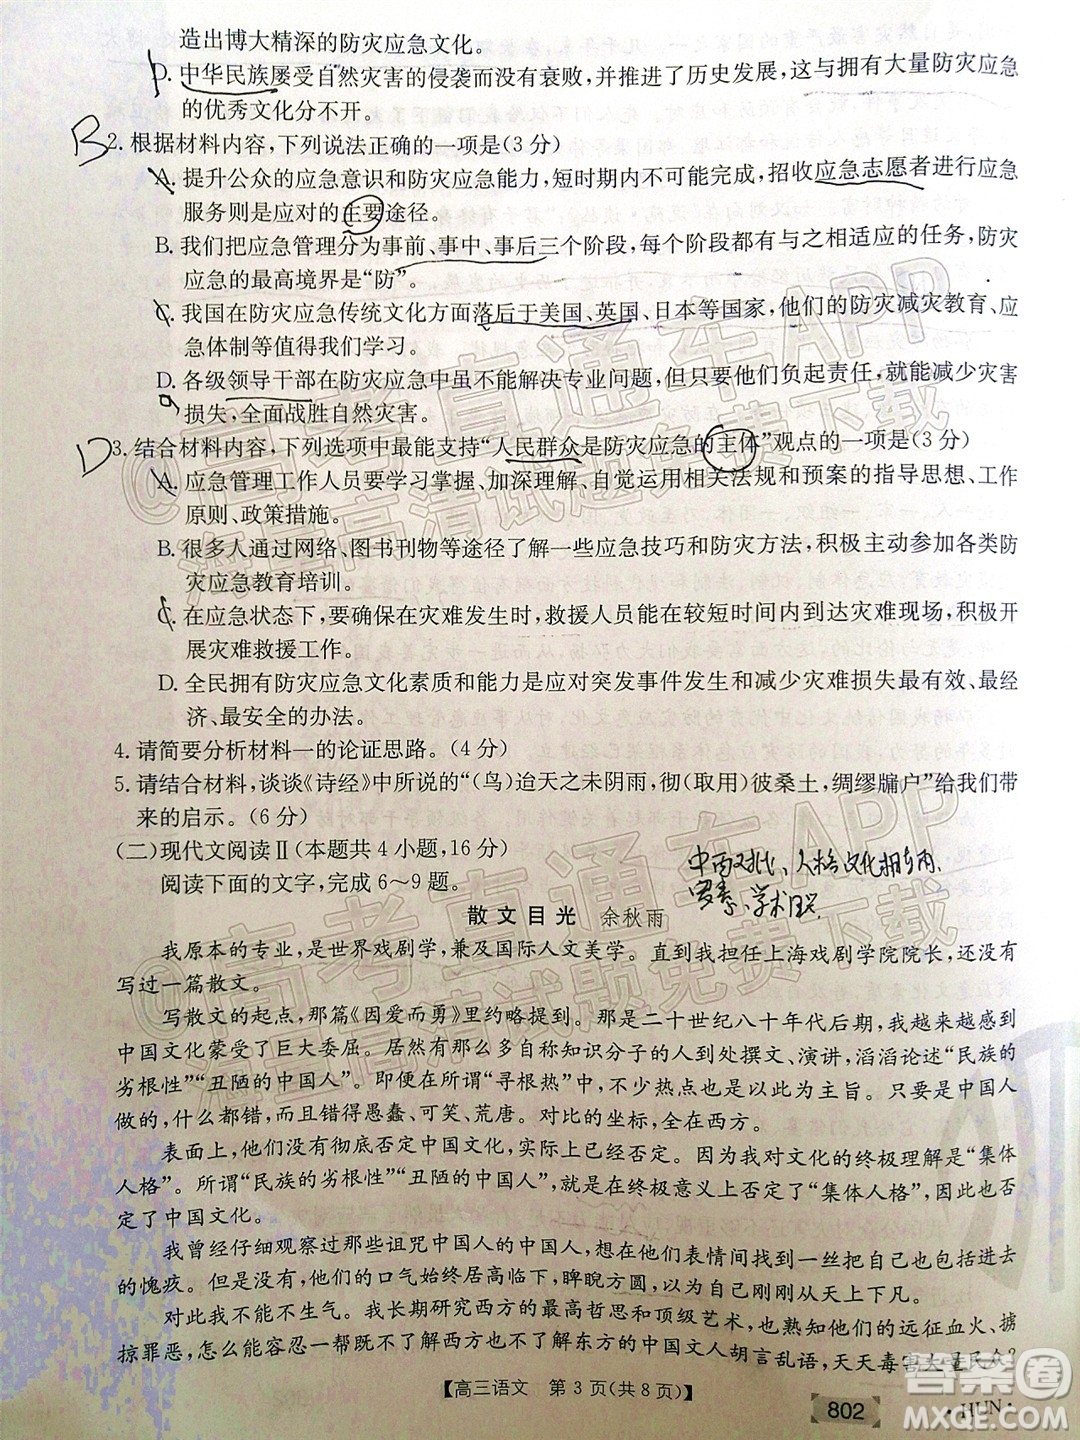 造出博大精深的防灾应急文化。
D. 中华民族屡受自然灾害的侵袭而没有衰败,并推进了历史发展,这与拥有大量防灾应急
的优秀文化分不开。
B 2. 根据材料内容,下列说法正确的一项是(3分)
A. 提升公众的应急意识和防灾应急能力,短时期内不可能完成,招收应急志愿者进行应急
服务则是应对的主要途径。
B. 我们把应急管理分为事前、事中、事后三个阶段,每个阶段都有与之相适应的任务,防灾
应急的最高境界是“防”。
C. 我国在防灾应急传统文化方面落后于美国、英国、日本等国家,他们的防灾减灾教育、应
急体制等值得我们学习。
D. 各级领导干部在防灾应急中虽不能解决专业问题,但只要他们负起责任,就能减少灾害
损失,全面战胜自然灾害。
D 3. 结合材料内容,下列选项中最能支持“人民群众是防灾应急的主体”观点的一项是(3分)
A. 应急管理工作人员要学习掌握、加深理解、自觉运用相关法规和预案的指导思想、工作
原则、政策措施。
B. 很多人通过网络、图书刊物等途径了解一些应急技巧和防灾方法,积极主动参加各类防
灾应急教育培训。
C. 在应急状态下,要确保在灾难发生时,救援人员能在较短时间内到达灾难现场,积极开
展灾难救援工作。
D. 全民拥有防灾应急文化素质和能力是应对突发事件发生和减少灾难损失最有效、最经
济、最安全的办法。
4. 请简要分析材料一的论证思路。(4分)
5. 请结合材料,谈谈《诗经》中所说的“(鸟)迨天之未阴雨,彻(取用)彼桑土,绸缪牖户”给我们带
来的启示。(6分)
(二)现代文阅读Ⅱ(本题共4小题,16分)
阅读下面的文字,完成6~9题。
散文目光 余秋雨
我原本的专业,是世界戏剧学,兼及国际人文美学。直到我担任上海戏剧学院院长,还没有
写过一篇散文。
写散文的起点,那篇《因爱而勇》里约略提到。那是二十世纪八十年代后期,我越来越感到
中国文化蒙受了巨大委屈。居然有那么多自称知识分子的人到处撰文、演讲,滔滔论述“民族的
劣根性”“丑陋的中国人”。即便在所谓“寻根热”中,不少热点也以此为主旨。只要是中国人
做的,什么都错,而且错得愚蠢、可笑、荒唐。对比的坐标,全在西方。
表面上,他们没有彻底否定中国文化,实际上已经否定。因为我对文化的终极理解是“集体
人格”。所谓“民族的劣根性”“丑陋的中国人”,在终极意义上否定了“集体人格”,因此也否
定了中国文化。
我曾经仔细观察过那些诅咒中国人的中国人,想从他们表情间找到一丝把自己也包括进去
的愧疚。但是没有,他们的口气始终居高临下,睥睨方圆,以为自己刚刚从天上下凡。
对此我不能不生气。我长期研究西方的最高哲思和顶级艺术,也熟知他们的远征血火、掳
掠罪恶,怎么能容忍一帮既不了解西方也不了解东方的中国文人胡言乱语,天天毒害大量民众?
【高三语文 第3页(共8页)】
802
·HUN·
答案圈
MXQE.COM
@高考直通车APP
海量高清试题免费下载
@高考直通车APP
海量高清试题免费下载